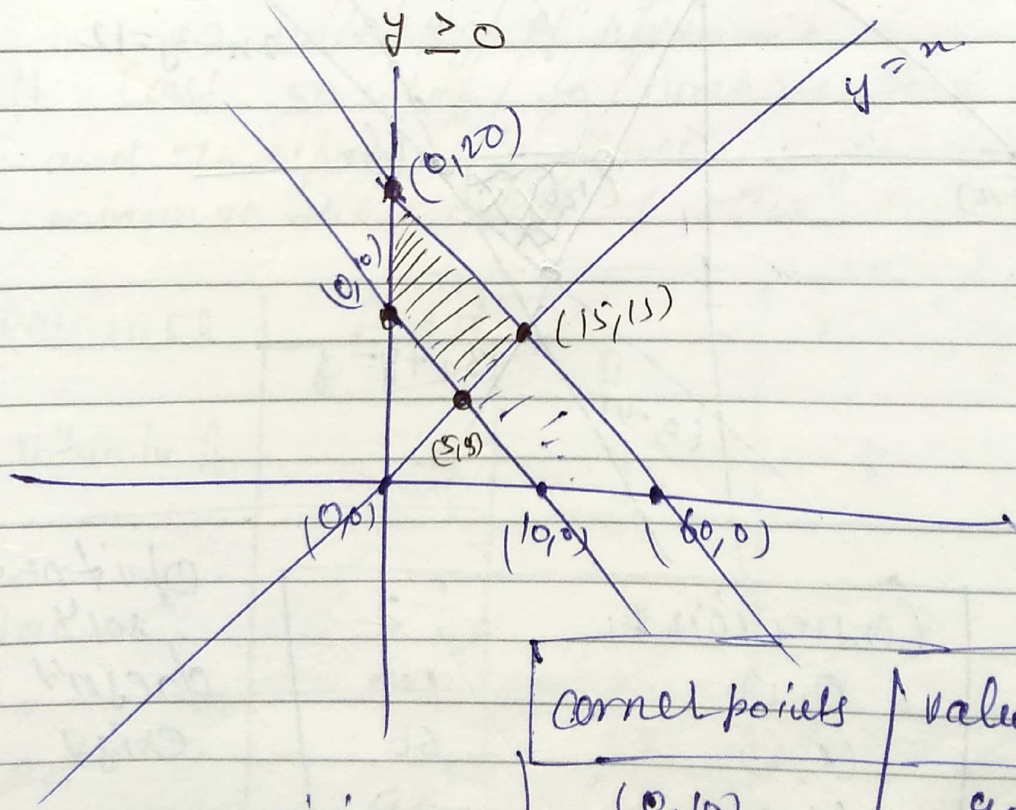 y ≥ 0
y = x
(0,20)
(0,10)
(15,15)
(5,5)
(0,0)
(10,0)
(60,0)
corner points
(0,10)